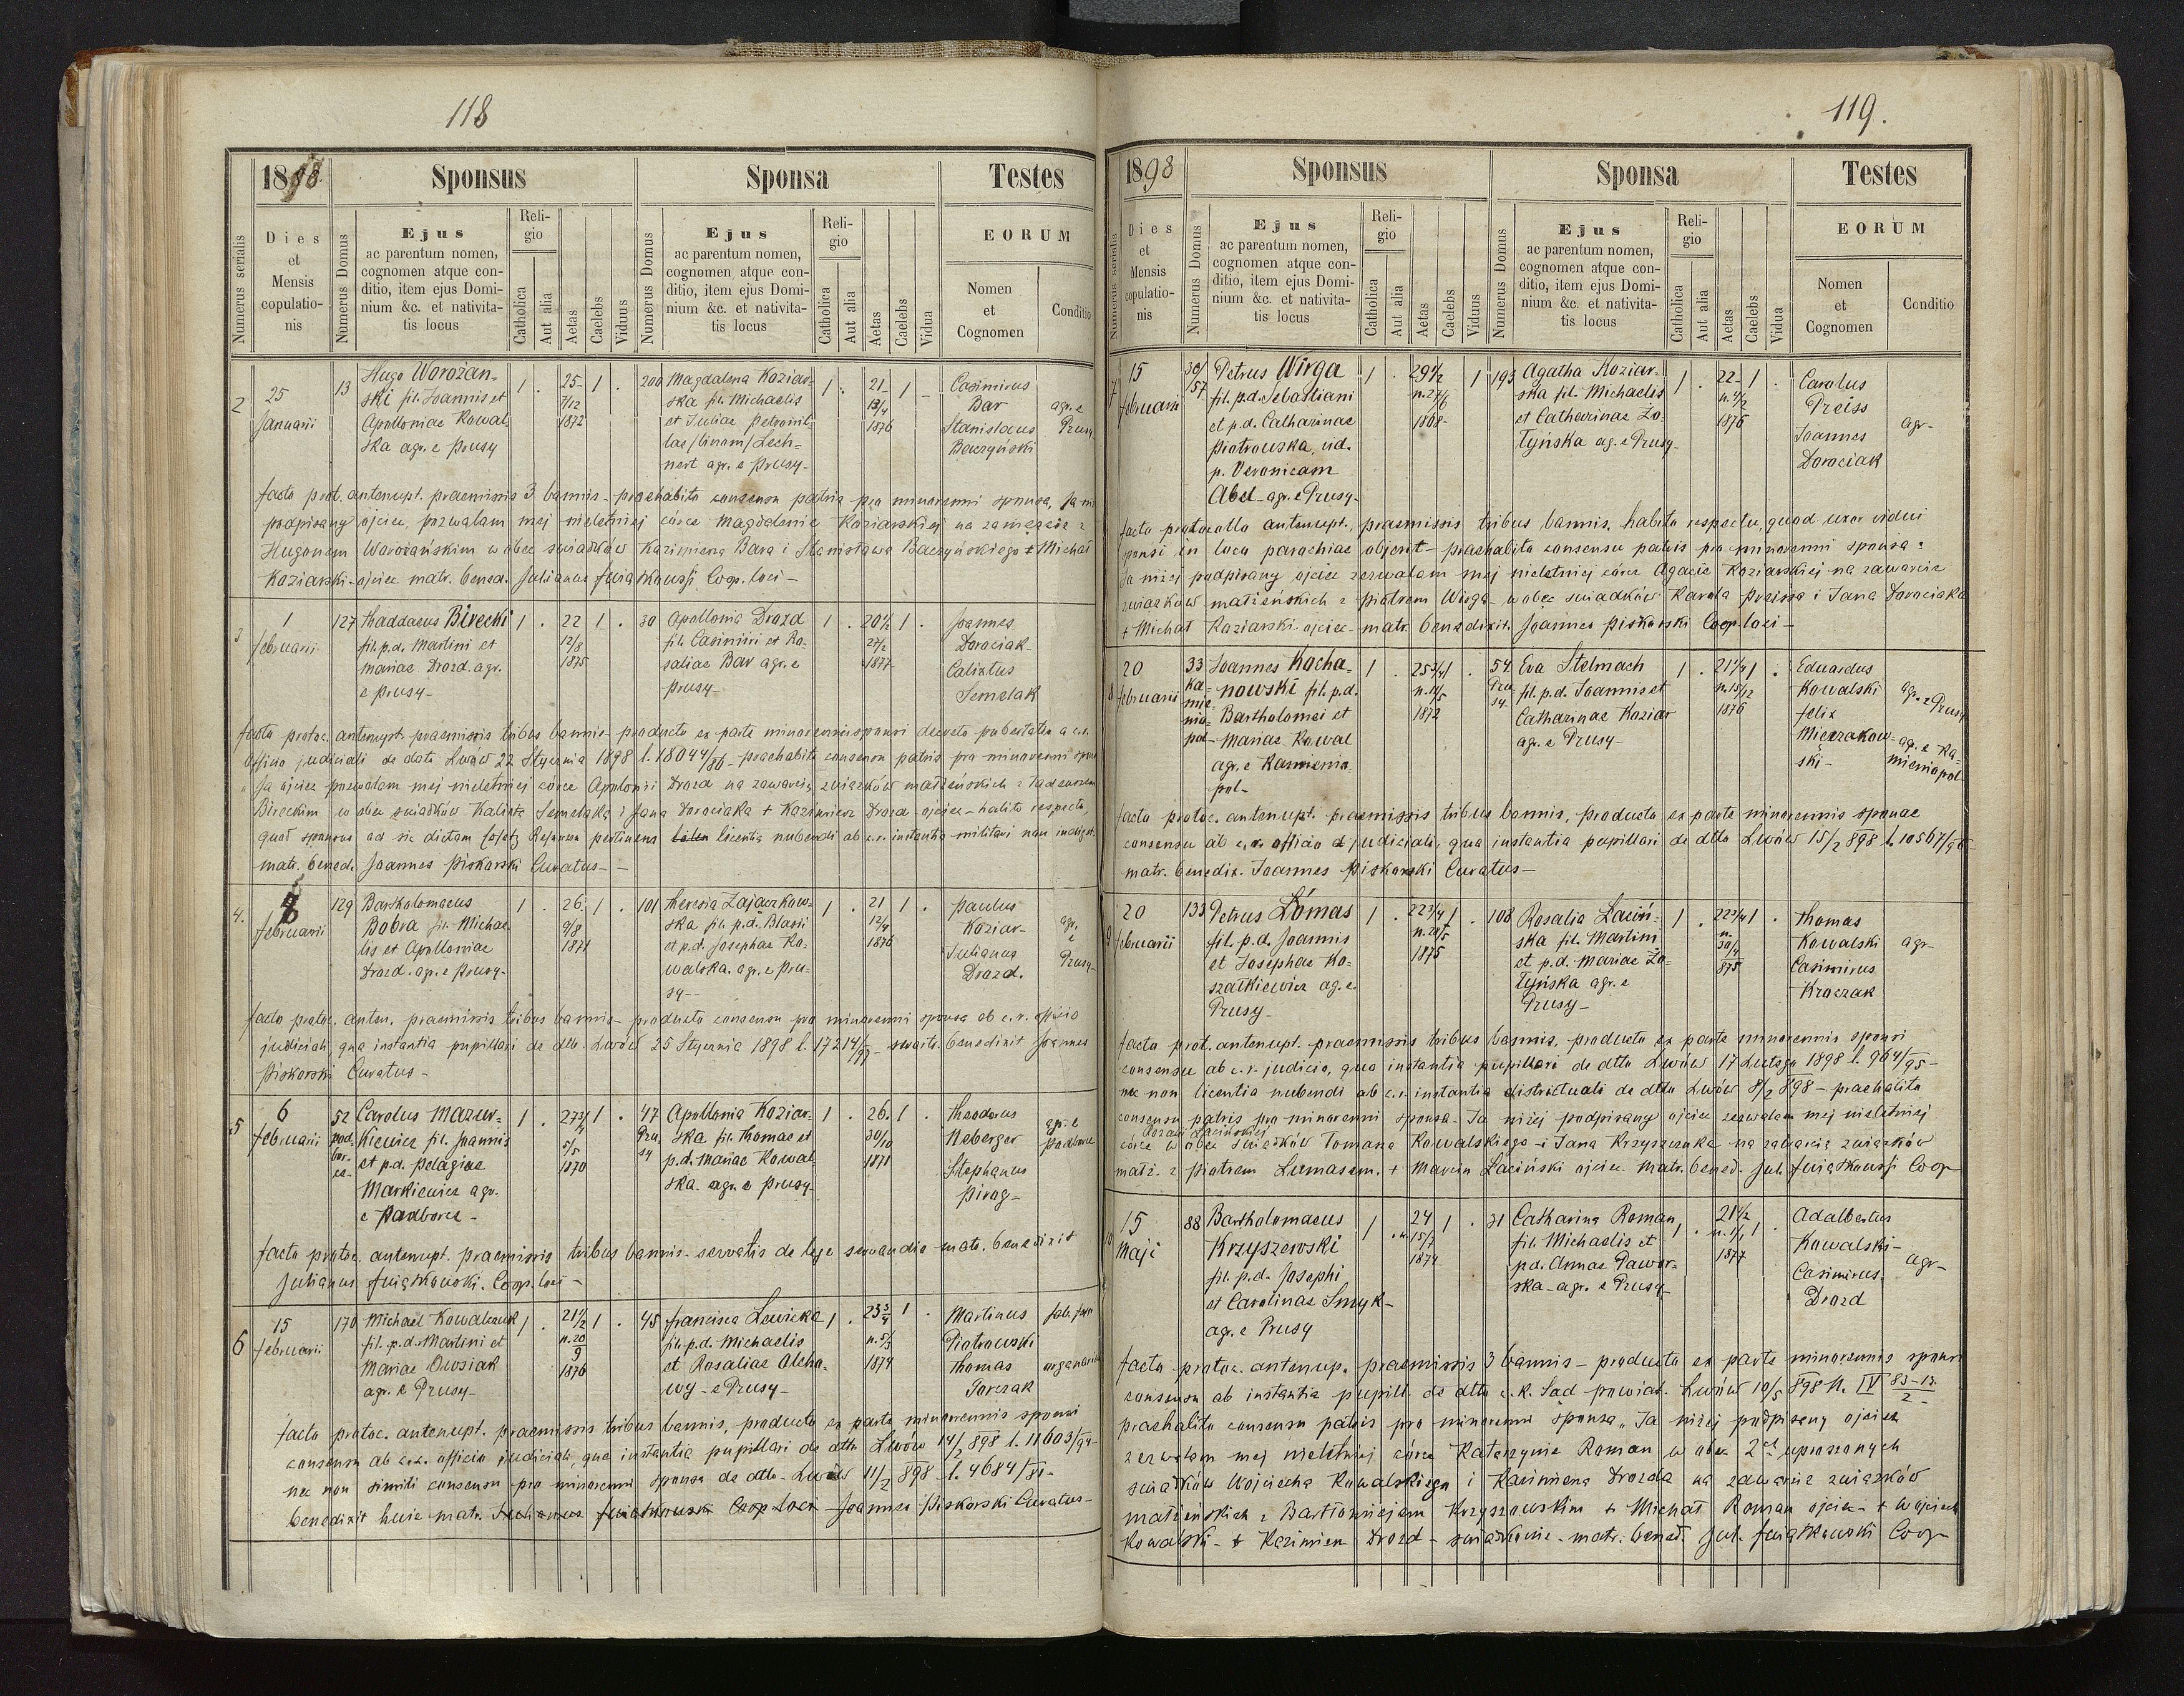 118
1898
Sponsus
Sponsa
Testes
Numerus serialis
Dies
et
Mensis
copulatio-
nis
Numerus Domus
Ejus
ac parentum nomen,
cognomen atque con-
ditio, item ejus Domi-
nium &c. et nativita-
tis locus
Reli-
gio
Catholica
Aut alia
Aetas
Caelebs
Viduus
Numerus Domus
Ejus
ac parentum nomen,
cognomen atque con-
ditio, item ejus Domi-
nium &c. et nativita-
tis locus
Reli-
gio
Catholica
Aut alia
Aetas
Caelebs
Vidua
EORUM
Nomen
et
Cognomen
Conditio
2
25
Januarii
13
Hugo Worożań-
ski fil. Joannis et
Apolloniae Kowal
ska agr. e Prusy
1 . 25 1 .
7/12
1872
200
Magdalena Koziar-
ska fil. Michaelis
et Juliae Petronil-
lae /binom/ Lech-
nert agr. e Prusy-
1 . 21 1 -
13/4
1876
Casimirus
Bar
Stanislaus
Baczyński
agr. e
Prusy
facto prot. antenupt. praemissis 3 bannis - praehabito consensu patris pro minorenni sponsa, Ja ni
podpisany ojciec, pozwalam mej nieletniej córce Magdalenie Koziarskiej na zamęście z
Hugonem Worożańskim w obec świadków Kazimierza Bara i Stanisława Baczyńskiego + Michał
Koziarski - ojciec matr. bened. Julianus Świątkowski Coop. loci -
3
1
februarii
127
Thaddaeus Birecki
fil. p.d. Martini et
Mariae Drozd. agr.
e Prusy -
1 . 22 1 .
12/8
1875
30
Apollonia Drozd
fil. Casimiri et Ro-
saliae Bar agr. e
Prusy -
1 . 20 1/2 1 .
27/2
1877
Joannes
Dorociak-
Calixtus
Semelak
facto protoc. antenupt. praemissis tribus bannis - producto ex parte minorennis sponsi decreto pubertatis a c.r.
officio judiciali de dato Lwów 22 Stycznia 1898 l. 18044/86 - praehabito consensu patris pro minorenni spon
"Ja ojciec pozwalam mej nieletniej córce Apolonii Drozd na zawarcie związków małżeńskich z Tadeuszem
Bireckim w obec świadków Kaliksta Semelaka i Jana Dorociaka + Kazimierz Drozd ojciec - habito respectu,
quod sponsus ad sic dictam Ersatz Reserven pertinens licentia nubendi ab c.r. instantia militari non indiget.
matr. bened. Joannes Piskorski Curatus -
4.
februarii
129
Bartholomaeus
Bobra fil. Michae
lis et Apolloniae
Drozd. agr. e Prusy-
1 . 26. 1 .
9/8
1871
101
Theresia Zajączkow-
ska fil. p.d. Blasii
et p.d. Josephae Ko-
walska. agr. e Pru-
sy -
1 . 21 1 .
12/9
1876
Paulus
Koziar-
Julianus
Drozd.
agr.
e
Prusy-
facto protoc. anten. praemissis tribus bannis - producto consensu pro minorenni sponsa ab c.r. officio
judiciali, qua instantia pupillari de dtto. Lwów 25 Stycznia 1898 l. 17214/97 - benedixit Joannes
Piskorski Curatus -
5
6
februarii
52
Pod-
bor-
ce-
Carolus Mazur-
kiewicz fil. Joannis
et p.d. Pelagiae
Markiewicz agr.
e Podborce -
1 . 27 3/4 1 .
5/5
1870
47
Pru-
sy
Apollonia Koziar-
ska fil. Thomae et
p.d. Mariae Kowal-
ska. agr. e Prusy
1 . 26. 1 .
30/10
1871
Theodorus
Neberger
Stephanus
Pirog -
agr. e
Podborce
facto protoc. antenupt. praemissis tribus bannis - servatis de lege servandis - matr. benedixit
Julianus Świątkowski. Coop. loci -
6
15
februarii
170
Michael Kowalczuk
fil. p.d. Martini et
Mariae Owsiak
agr. e Prusy -
1 . 21 1/2 1 .
n. 20
9
1876
45
Francisca Lewicka
fil. p.d. Michaelis
et Rosaliae Olcho-
wy - e Prusy -
1 . 23 3/4 1 .
n. 5/3
1874
Martinus
Piotrowski
Thomas
Parczak
organarius
facto protoc. antenupt. praemissis tribus bannis, producto ex parte minorennis sponsi
consensu ab c.r. officio judiciali, qua instantia pupillari de dtto Lwów 14/2 898 l. 11603/94-
nec non simili consensu pro minorenni sponsa de dtto - Lwów 11/2 898 - l. 4684/81 -
benedixit huic matr. Julianus Świątkowski Coop loci - Joannes Piskorski Curatus -
119.
1898
Sponsus
Sponsa
Testes
Numerus serialis
Dies
et
Mensis
copulatio-
nis
Numerus Domus
Ejus
ac parentum nomen,
cognomen atque con-
ditio, item ejus Domi-
nium &c. et nativita-
tis locus
Reli-
gio
Catholica
Aut alia
Aetas
Caelebs
Viduus
Numerus Domus
Ejus
ac parentum nomen,
cognomen atque con-
ditio, item ejus Domi-
nium &c. et nativita-
tis locus
Reli-
gio
Catholica
Aut alia
Aetas
Caelebs
Vidua
EORUM
Nomen
et
Cognomen
Conditio
7
15
februarii
30/
157
Petrus Wirga
fil. p.d. Sebastiani
et p.d. Catharinae
Piotrowska, vid.
p. Veronicam
Abel - agr. e Prusy-
1 . 29 1/2 1
n. 27/6
1868-
193
Agatha Koziar-
ska fil. Michaelis
et Catharinae Ło-
tyńska agr. e Prusy-
1 . 22 - 1 .
n. 4/2
1876
Carolus
Preiss
Joannes
Dorociak
agr-
facto protocollo antenupt., praemissis tribus bannis, habito respectu, quod uxor vidui
sponsi in loco parochiae objerit - praehabito consensu patris pro minorenni sponsa:
Ja niżej podpisany ojciec zezwalam mej nieletniej córce Agacie Koziarskiej na zawarcie
związków małżeńskich z Piotrem Wirgą - w obec świadków Karola Preissa i Jana Dorociaka
+ Michał Koziarski - ojciec - matr. benedixit. Joannes Piskorski Coop. loci -
8
20
februarii
33
Ka-
mie-
nio-
pol-
Joannes Kocha-
nowski fil. p.d.
Bartholomei et
Mariae Kowal
agr. e Kamienio-
pol -
1 . 25 3/4 1 .
n. 14/5
1872
54
Pru-
sy.
Eva Stelmach
fil. p.d. Joannis et
Catharinae Koziar
agr. e Prusy -
1 . 21 1/4 1 .
n. 15/12
1876
Eduardus
Kowalski
Felix
Mierzakow-
ski -
agr. e Prusy
agr. e Ka-
mieniopol
facto protoc. antenupt. praemissis tribus bannis, producto ex parte minorennis sponsae
consensu ab c.r. officio judiciali, qua instantia pupillari de dtto Lwów 15/2 898 l. 10567/96-
matr. benedix. Joannes Piskorski Curatus -
9
20
februarii
133
Petrus Łomas
fil. p.d. Joannis
et Josephae Ko-
szałkiewicz ag. e
Prusy -
1 . 22 3/4 1 .
n. 29/5
1875
108
Rosalia Laciń-
ska fil. Martini
et p.d. Mariae Ło-
tyńska agr. e
Prusy -
1 . 22 3/4 1 .
n.
30/4
875
Thomas
Kowalski
Casimirus
Kroczak
agr-
facto prot. antenupt. praemissis tribus bannis, producto ex parte minorennis sponsi
consensu ab c.r. judicio, qua instantia pupillari de dtto Lwów 17 Lutego 1898 l. 964/95 -
nec non licentia nubendi ab c.r. instantia districtuali de dtto Lwów 8/2 898 - praehabito
consensu patris pro minorenni sponsa - Ja niżej podpisany ojciec zezwalam mej nieletniej
córce Rozalii Lacińskiej w obec świadków Tomasza Kowalskiego - i Jana Krzyszczuka na zawarcie związków
małż. z Piotrem Łumasem. + Marcin Laciński ojciec. matr. bened. Jul. Świątkowski Coop
10
15
Maji
88
Bartholomaeus
Krzyszewski
fil. p.d. Josephi
et Carolinae Smyk-
agr. e Prusy
1 . 24 1 .
n. 15/7
1874
31
Catharina Roman
fil. Michaelis et
p.d. Annae Pawor-
ska - agr. e Prusy -
1 . 21 1/2 1 .
n. 1/1
1877
Adalbertus
Kowalski -
Casimirus
Drozd
agr-
facto protoc. antenup. praemissis 3 bannis - producto ex parte minorennis sponsi
consensu ab instantia pupill. de dtto c.k. Sąd powiat. Lwów 10/5 898 N. IV 83-13/2
praehabito consensu patris pro minorenni sponsa "Ja niżej podpisany ojciec
zezwalam mej nieletniej córce Katarzynie Roman w obec 2ch uproszonych
świadków Wojciecha Kowalskiego i Kazimierza Drozda na zawarcie związków
małżeńskich z Bartłomiejem Krzyszowskim + Michał Roman ojciec + Wojciech
Kowalski - + Kazimierz Drozd - świadkowie - matr. bened. Jul. Świątkowski Coop